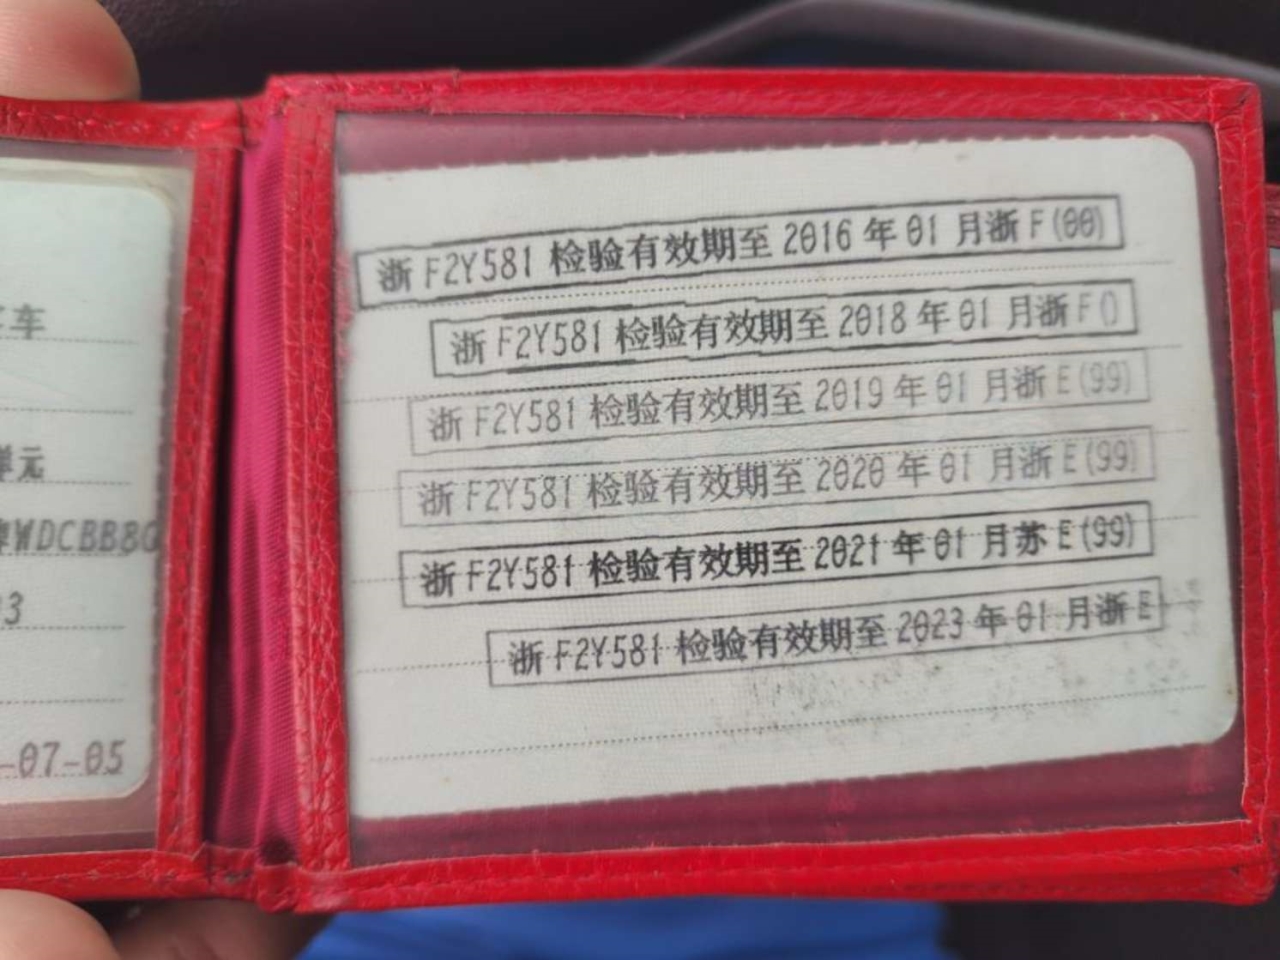 车
单元
WDCBB8
3
-07-05
浙 F2Y581 检验有效期至 2016 年 01 月浙 F(00)
浙 F2Y581 检验有效期至 2018 年 01 月浙 F()
浙 F2Y581 检验有效期至 2019 年 01 月浙 E(99)
浙 F2Y581 检验有效期至 2020 年 01 月浙 E(99)
浙 F2Y581 检验有效期至 2021 年 01 月苏 E(99)
浙 F2Y581 检验有效期至 2023 年 01 月浙 E